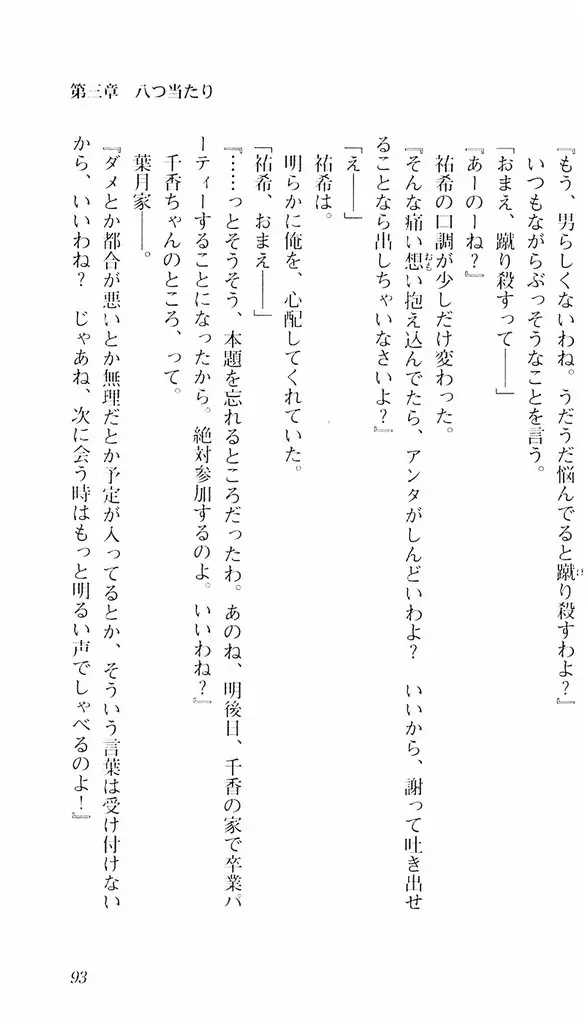 第三章　八つ当たり
『もう、男らしくないわね。うだうだ悩んでると蹴り殺すわよ？』
いつもながらぶっそうなことを言う。
「おまえ、蹴り殺すって――」
『あーのーね？』
祐希の口調が少しだけ変わった。
『そんな痛い想い抱え込んでたら、アンタがしんどいわよ？　いいから、謝って吐き出せ
ることなら出しちゃいなさいよ？』
「え――」
祐希は。
明らかに俺を、心配してくれていた。
「祐希、おまえ――」
『……っとそうそう、本題を忘れるところだったわ。あのね、明後日、千香の家で卒業パ
ーティーすることになったから。絶対参加するのよ。いいわね？』
千香ちゃんのところ、って。
葉月家――。
『ダメとか都合が悪いとか無理だとか予定が入ってるとか、そういう言葉は受け付けない
から、いいわね？　じゃあね、次に会う時はもっと明るい声でしゃべるのよ！』
93